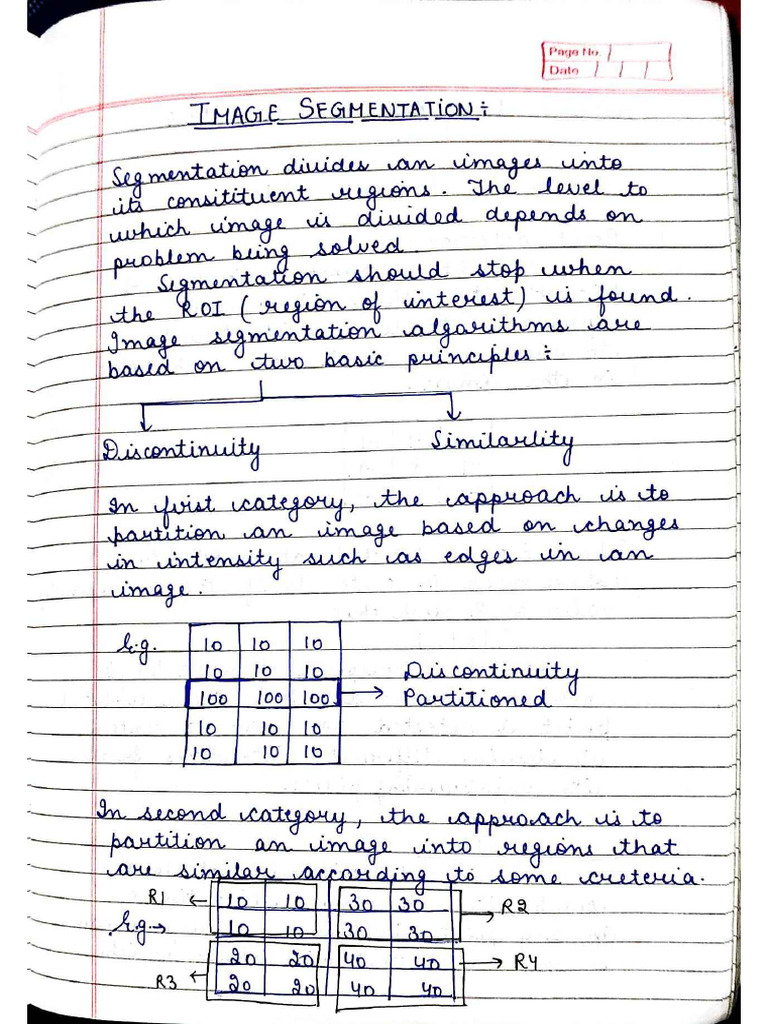 Page No.
Date
IMAGE SEGMENTATION:
Segmentation divides an images into
its consitituent regions. The level to
which image is divided depends on
problem being solved.
Segmentation should stop when
the ROI (region of interest) is found.
Image segmentation algorithms are
based on two basic principles:
Discontinuity Similarlity
In first category, the approach is to
partition an image based on changes
in intensity such as edges in an
image.
E.g. 10 10 10
10 10 10 Discontinuity
100 100 100 → Partitioned
10 10 10
10 10 10
In second category, the approach is to
partition an image into regions that
are similar according to some creteria.
R1 ← 10 10 30 30 → R2
E.g→ 10 10 30 30
20 20 40 40 → R4
R3 ← 20 20 40 40